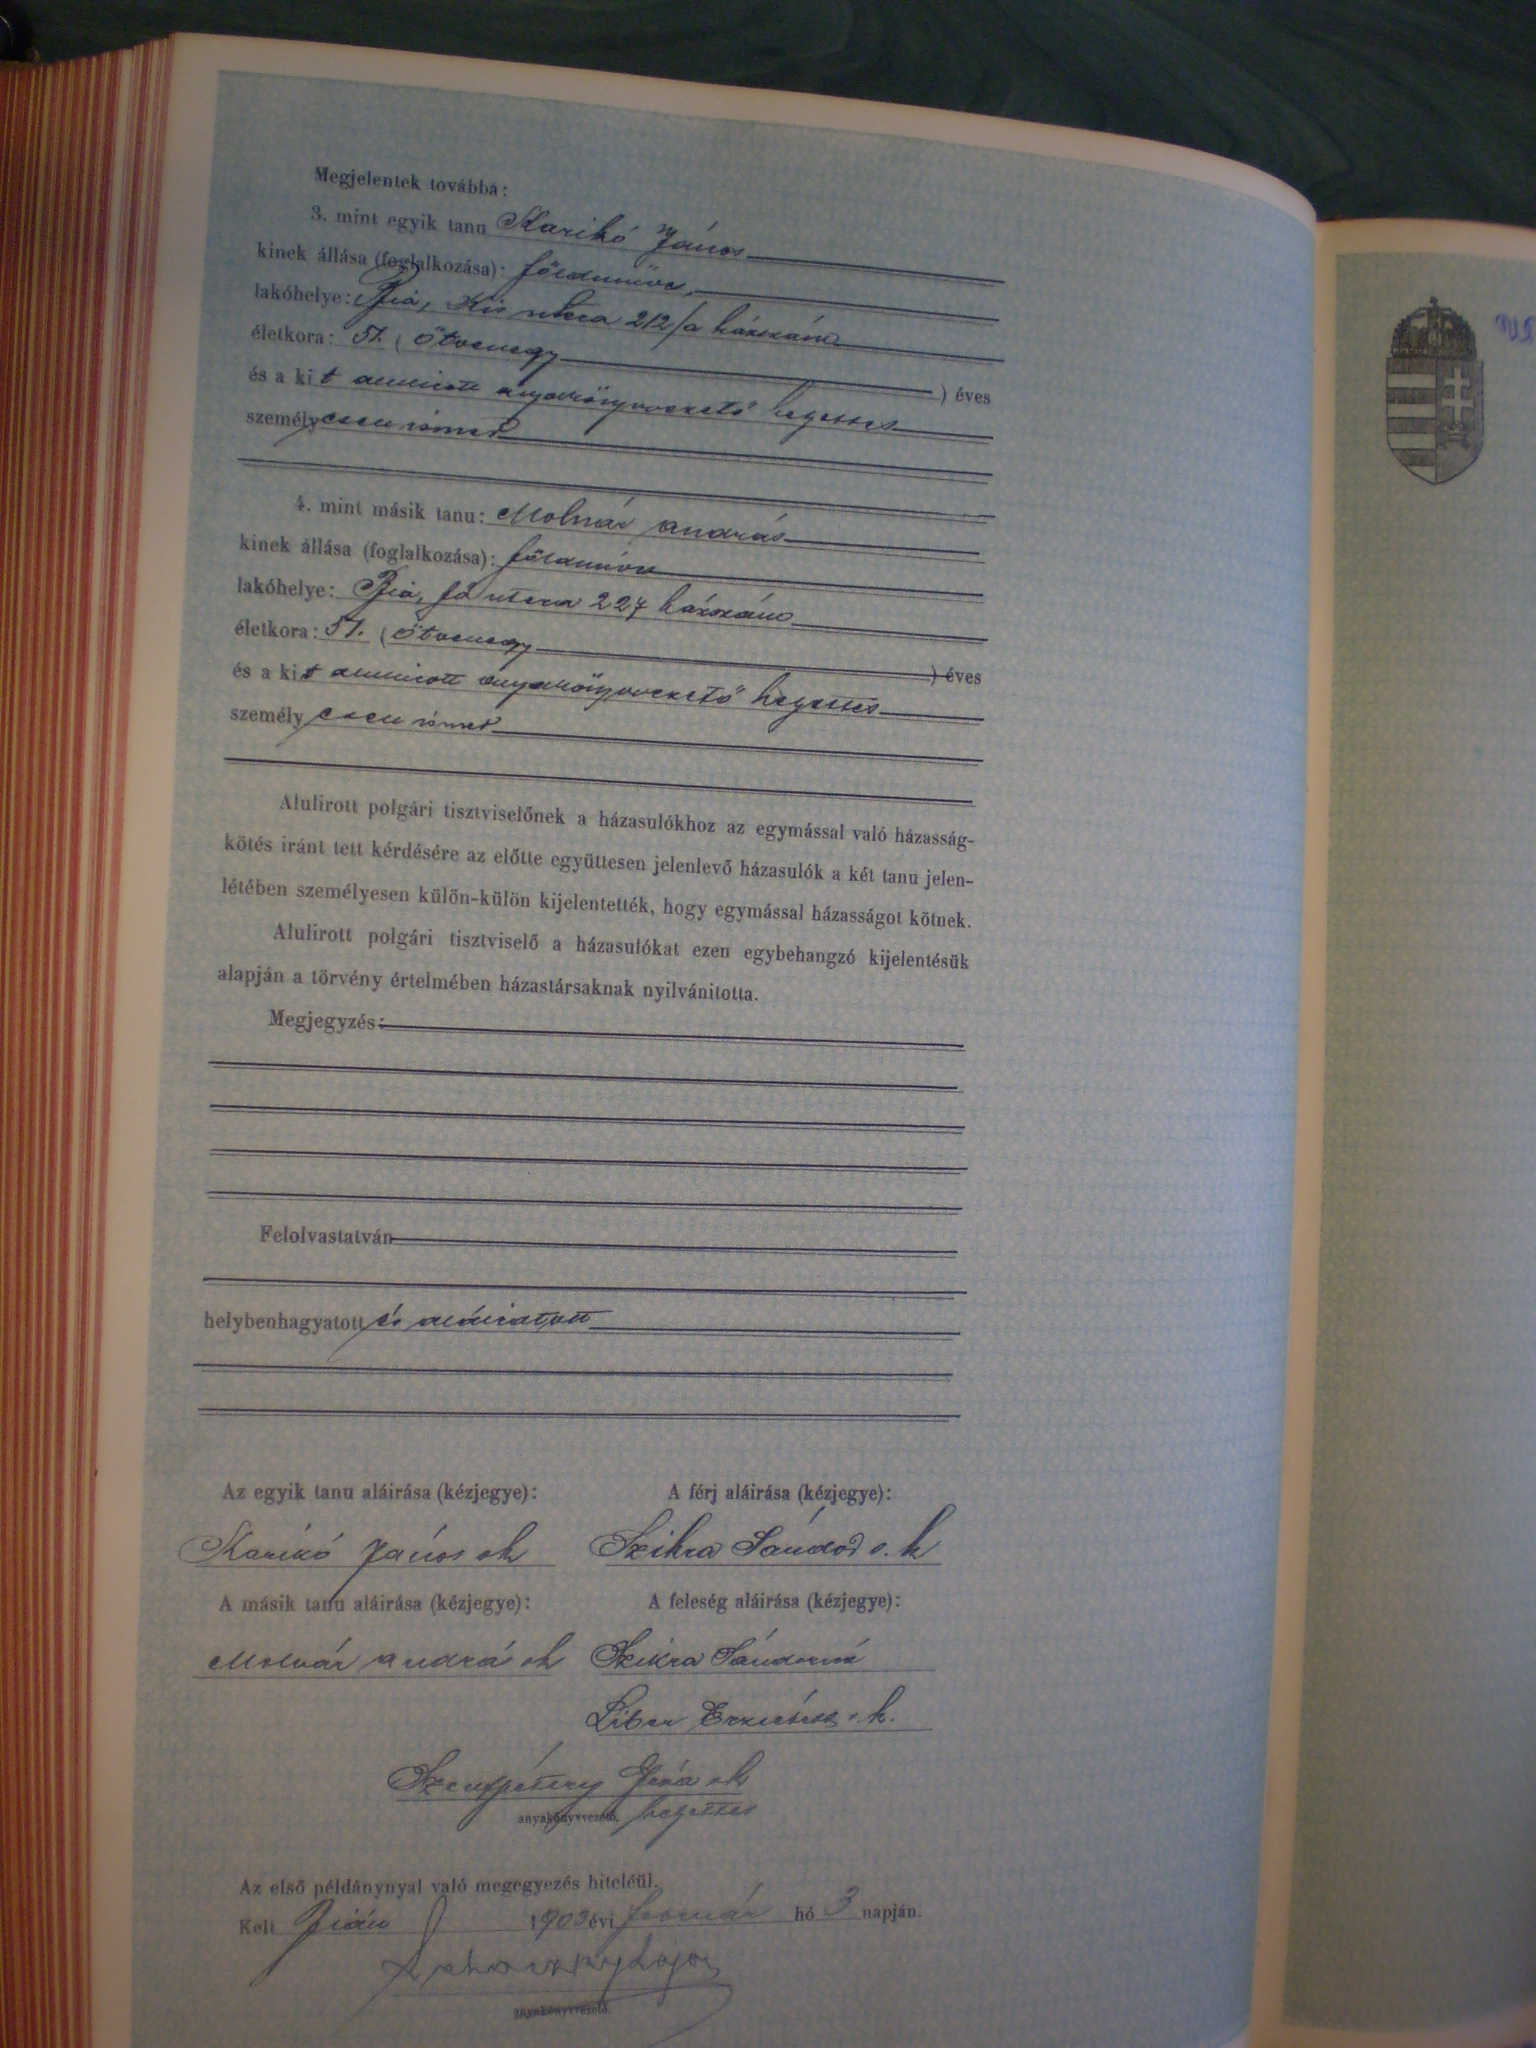 Megjelentek továbbá:
3. mint egyik tanu Karikó János
kinek állása (foglalkozása): földműves
lakóhelye: Bia, Kis utcza 212/a házszám
életkora: 51. (ötvenegy ) éves
és a kit alulirott anyakönyvvezető helyettes
személyesen ismer
4. mint másik tanu: Molnár András
kinek állása (foglalkozása): földműves
lakóhelye: Bia, fő utcza 227 házszám
életkora: 51. (ötvenegy ) éves
és a kit alulirott anyakönyvvezető helyettes
személyesen ismer
Alulirott polgári tisztviselőnek a házasulókhoz az egymással való házasság-
kötés iránt tett kérdésére az előtte együttesen jelenlevő házasulók a két tanu jelen-
létében személyesen külön-külön kijelentették, hogy egymással házasságot kötnek.
Alulirott polgári tisztviselő a házasulókat ezen egybehangzó kijelentésük
alapján a törvény értelmében házastársaknak nyilvánitotta.
Megjegyzés:
Felolvastatván
helybenhagyatott és aláiratott
Az egyik tanu aláirása (kézjegye): A férj aláirása (kézjegye):
Karikó János sk Szikra Sándor s. k
A másik tanu aláirása (kézjegye): A feleség aláirása (kézjegye):
Molnár András sk Szikra Sándorné
Liber Erzsébet s. k.
Szentpétery Géza sk
anyakönyvvezető. helyettes
Az első példánynyal való megegyezés hiteléül.
Kelt Bián 1903 évi február hó 3 napján.
Lajos
anyakönyvvezető.